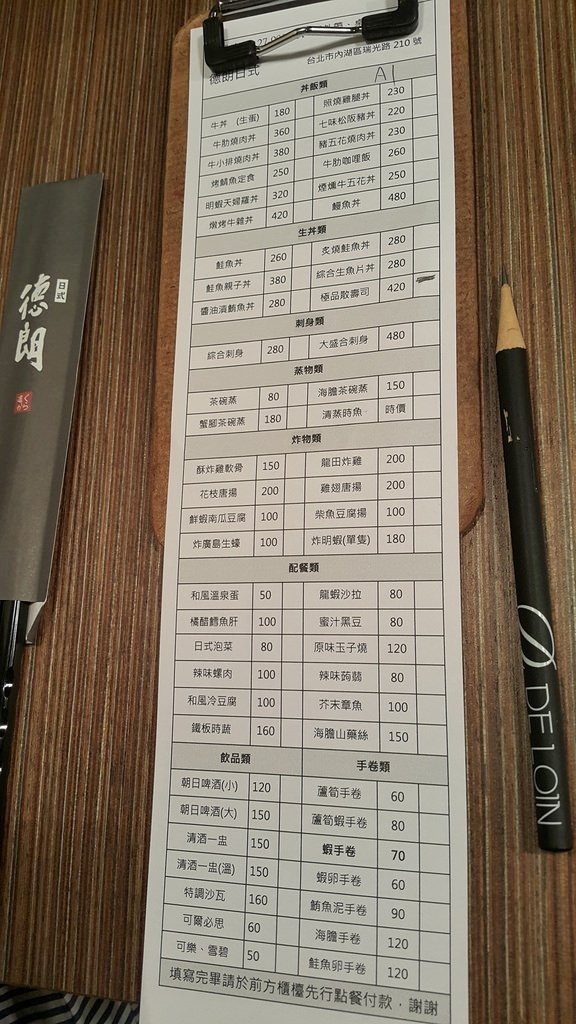 台北市內湖區瑞光路 210 號
德朗日式
A1
丼飯類
牛丼 (生蛋) 180 照燒雞腿丼 230
牛肋燒肉丼 360 七味松阪豬丼 220
牛小排燒肉丼 380 豬五花燒肉丼 230
烤鯖魚定食 250 牛肋咖哩飯 260
明蝦天婦羅丼 320 煙燻牛五花丼 250
燉烤牛雜丼 420 鰻魚丼 480
生丼類
鮭魚丼 260 炙燒鮭魚丼 280
鮭魚親子丼 380 綜合生魚片丼 280
醬油漬鮪魚丼 280 極品散壽司 420
刺身類
綜合刺身 280 大盛合刺身 480
蒸物類
茶碗蒸 80 海膽茶碗蒸 150
蟹腳茶碗蒸 180 清蒸時魚 時價
炸物類
酥炸雞軟骨 150 龍田炸雞 200
花枝唐揚 200 雞翅唐揚 200
鮮蝦南瓜豆腐 100 柴魚豆腐揚 100
炸廣島生蠔 100 炸明蝦(單隻) 180
配餐類
和風溫泉蛋 50 龍蝦沙拉 80
橘醋鱈魚肝 100 蜜汁黑豆 80
日式泡菜 80 原味玉子燒 120
辣味螺肉 100 辣味蒟蒻 80
和風冷豆腐 100 芥末章魚 100
鐵板時蔬 160 海膽山藥絲 150
飲品類 手卷類
朝日啤酒(小) 120 蘆筍手卷 60
朝日啤酒(大) 150 蘆筍蝦手卷 80
清酒一盅 150 蝦手卷 70
清酒一盅(溫) 150 蝦卵手卷 60
特調沙瓦 160 鮪魚泥手卷 90
可爾必思 60 海膽手卷 120
可樂、雪碧 50 鮭魚卵手卷 120
填寫完畢請於前方櫃檯先行點餐付款，謝謝
日式
德朗
DE LOIN